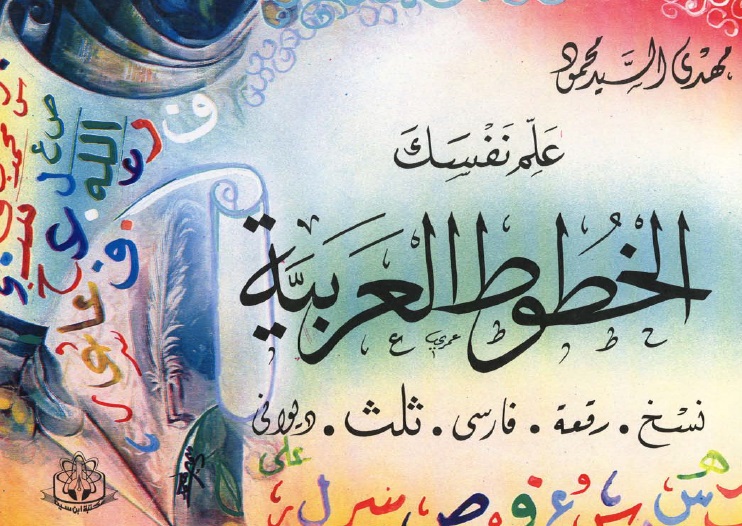 مهدى السيد محمود
عَلِّم نَفْسَكَ
الخُطُوط العَرَبيَّة
نسْخ . رقعة . فارسى . ثلث . ديوانى
الله
على
مكتبة ابن سينا